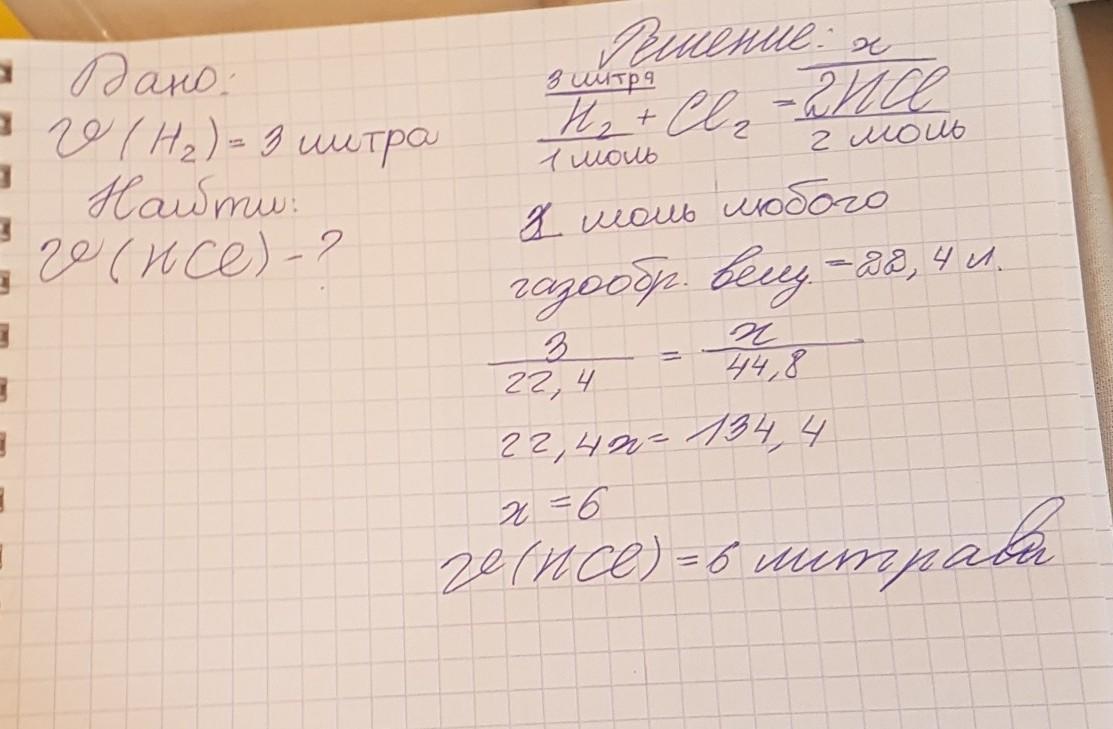 Дано:
V(H₂) = 3 литра
Найти:
V(HCl) - ?
Решение:
3 литра x
H₂ + Cl₂ = 2HCl
1 моль 2 моль
1 моль любого
газообр. вещ. = 22,4 л.
3/22,4 = x/44,8
22,4x = 134,4
x = 6
V(HCl) = 6 литра